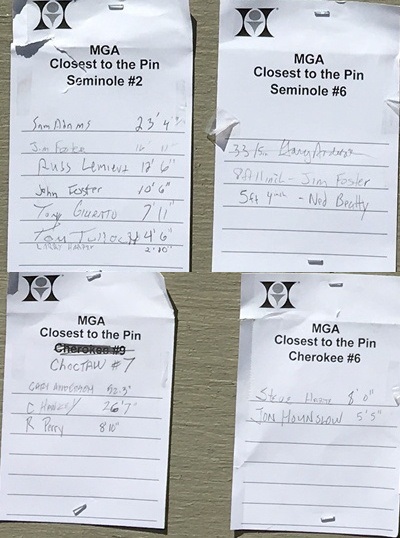 MGA
Closest to the Pin
Seminole #2
Sam Adams 23' 4"
Jim Foster 16' 11"
Russ Lemieux 12' 6"
John Foster 10' 6"
Tony Giurato 7' 11"
Tom Tulloch 4' 6"
2' 10"
MGA
Closest to the Pin
Seminole #6
33 Gary Anderson
8ft 11 inch - Jim Foster
5ft 4 inch - Ned Beatty
MGA
Closest to the Pin
Cherokee #9
Choctaw #7
Gary Anderson
26' 7"
R Perry 8' 10"
MGA
Closest to the Pin
Cherokee #6
Steve 8' 0"
Jon Hounslow 5' 5"